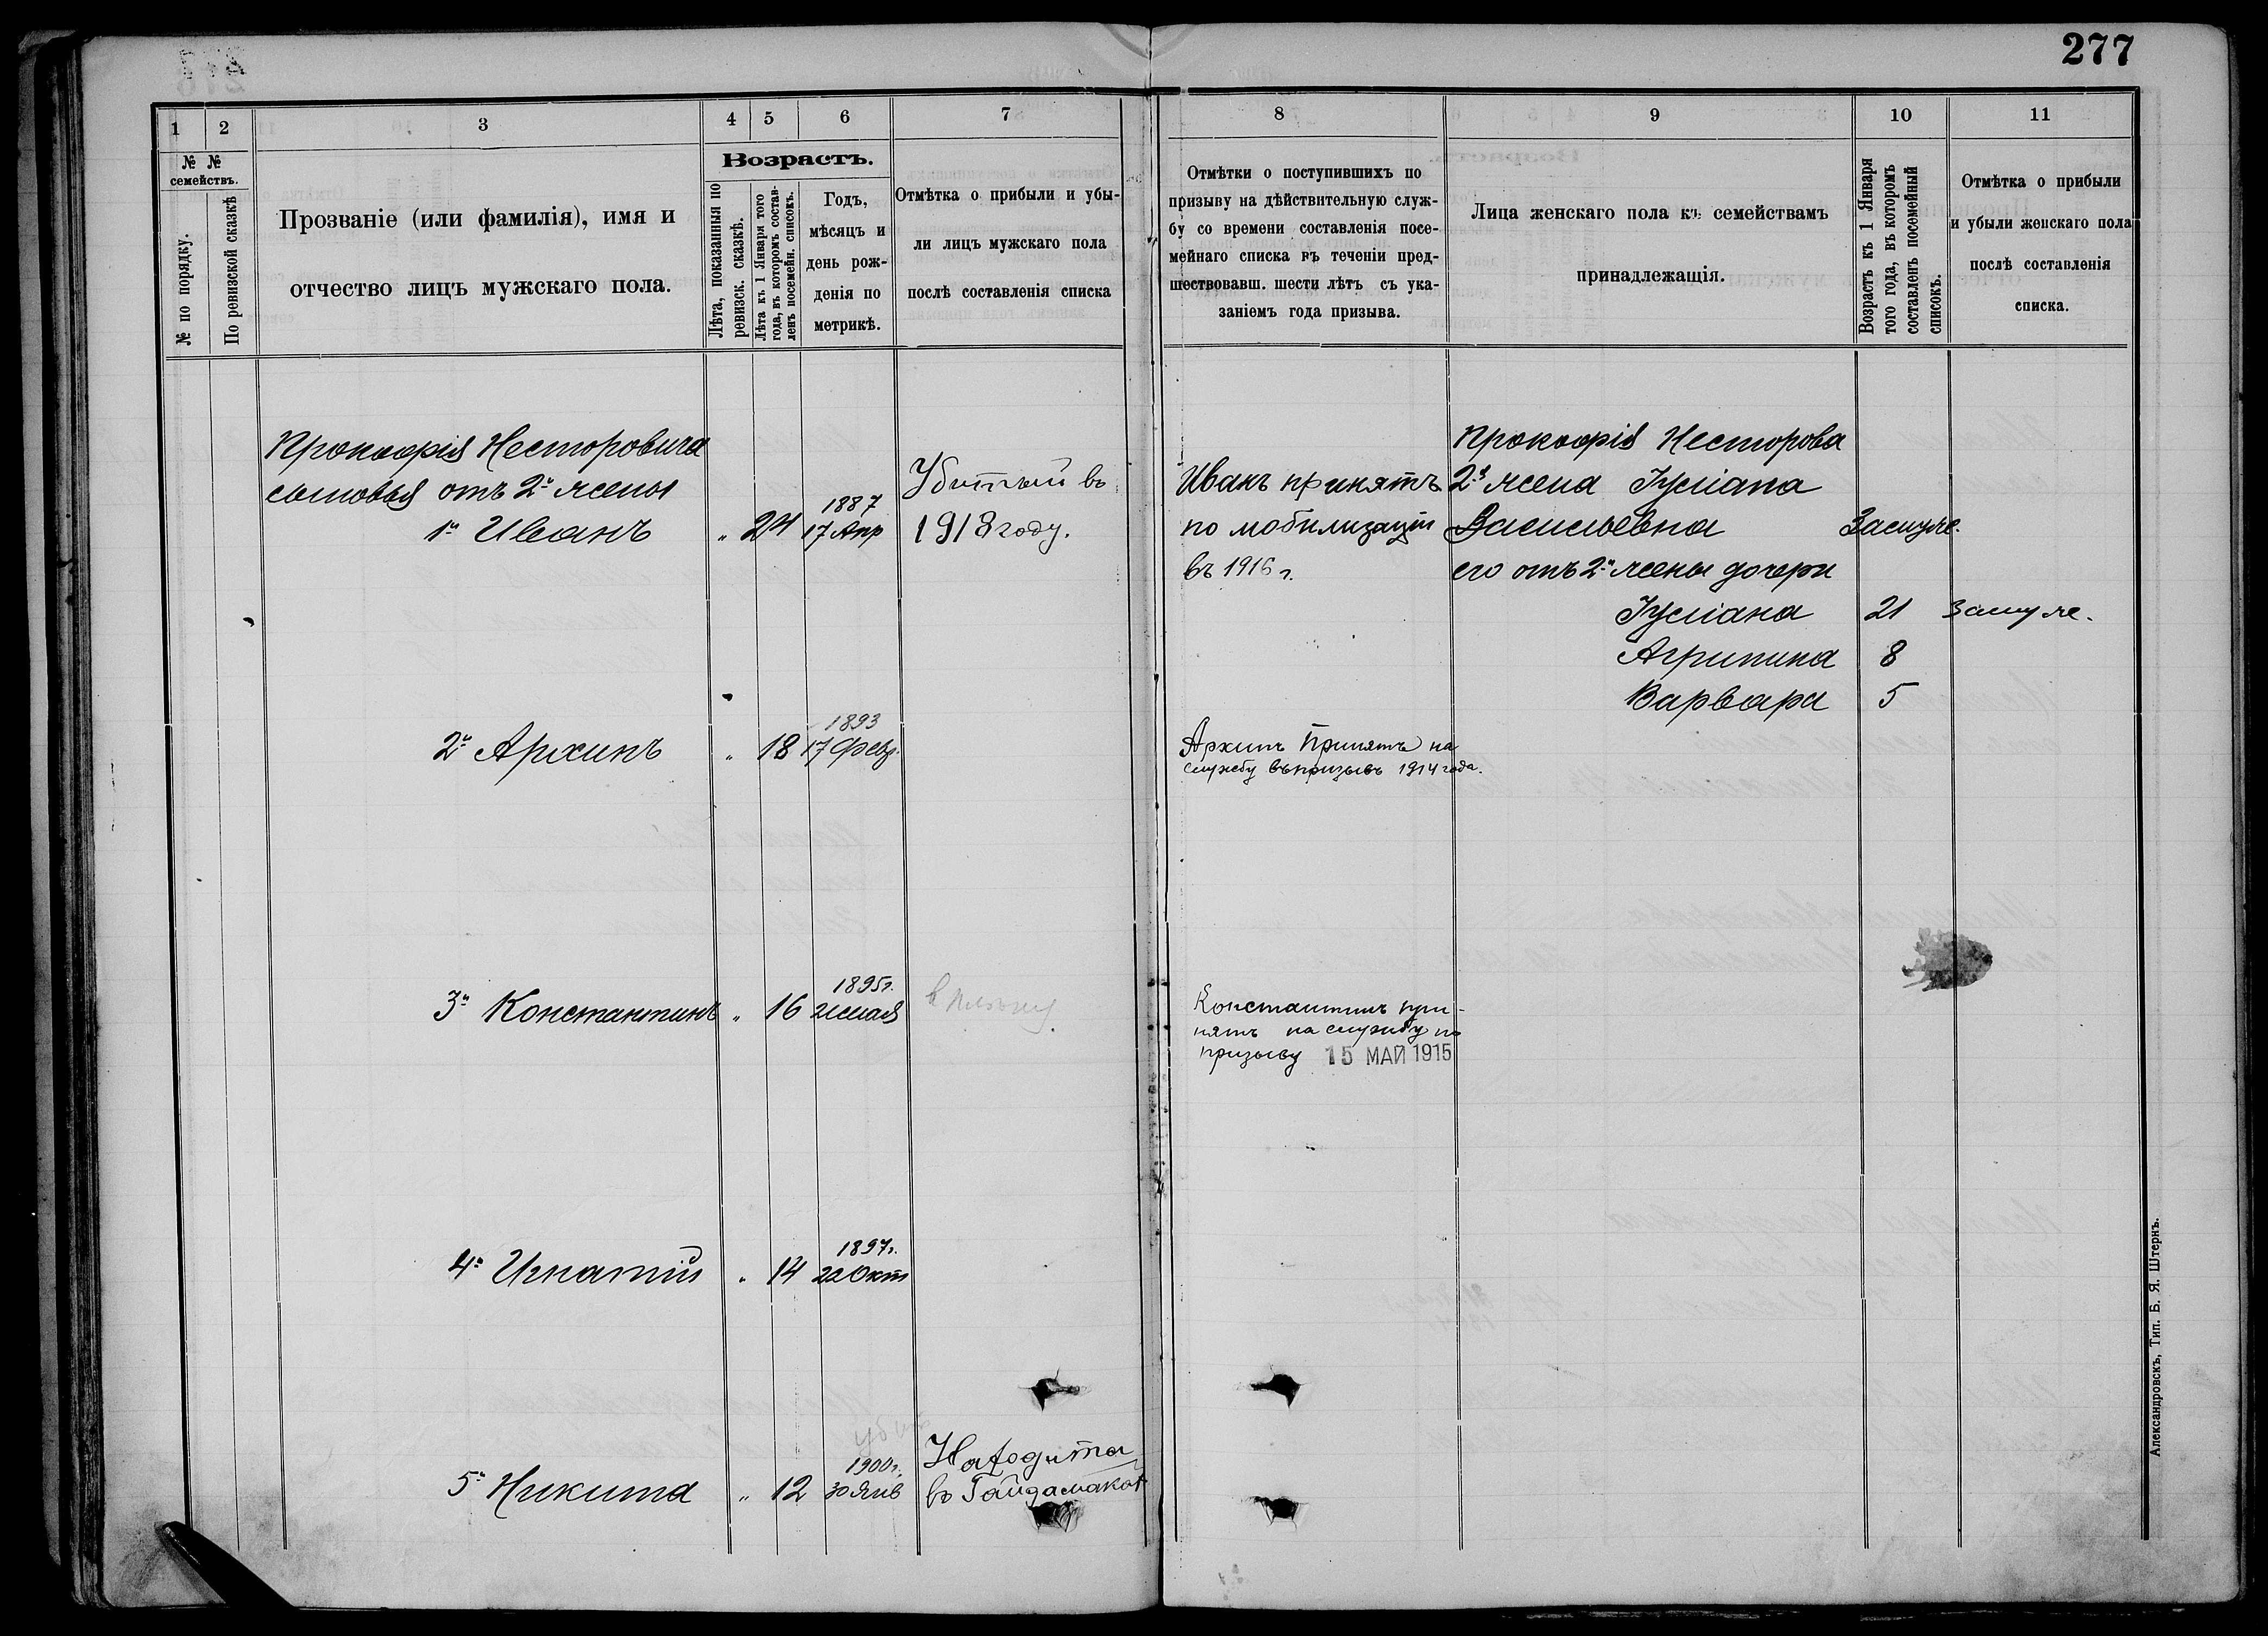 277
1 2 3 4 5 6 7
№ № семействъ.
№ по порядку.
По ревизской сказкѣ
Прозваніе (или фамилія), имя и
отчество лицъ мужскаго пола.
Возрастъ.
Лѣта, показанныя по
ревизск. сказкѣ.
Лѣта къ 1 Января того
года, въ которомъ состав-
ленъ посемейн. списокъ.
Годъ,
мѣсяцъ и
день рож-
денія по
метрикѣ.
Отмѣтка о прибыли и убы-
ли лицъ мужскаго пола
послѣ составленія списка
8 9 10 11
Отмѣтки о поступившихъ по
призыву на дѣйствительную служ-
бу со времени составленія посе-
мейнаго списка въ теченіи пред-
шествовавш. шести лѣтъ съ ука-
заніемъ года призыва.
Лица женскаго пола къ семействамъ
принадлежащія.
Возрастъ къ 1 Января
того года, въ которомъ
составленъ посемейный
списокъ.
Отмѣтка о прибыли
и убыли женскаго пола
послѣ составленія
списка.
Прокофія Несторовича
сыновья отъ 2й жены
1й Иванъ " 24 1887 17 Апр
Убитый въ
1918 году.
2й Архипъ " 18 1893 17 Февр.
3й Константинъ " 16 1895г. 21 мая
4й Игнатій " 14 1897г. 22 Окт
5й Никита " 12 1900г. 30 Янв
Находитца
въ Гайдамаках
Иванъ принятъ
по мобилизаціи
въ 1916 г.
Архипъ Принятъ на
службу въ призывъ 1914 года.
Константинъ при-
нятъ на службу по
призыву 15 МАЙ 1915
Прокофія Несторова
2я жена Іуліана
Васильевна Замуж.
его отъ 2й жены дочери
Іуліана 21 Замуж.
Агрипина 8
Варвара 5
Александровскъ, Тип. Б. Я. Штернъ.